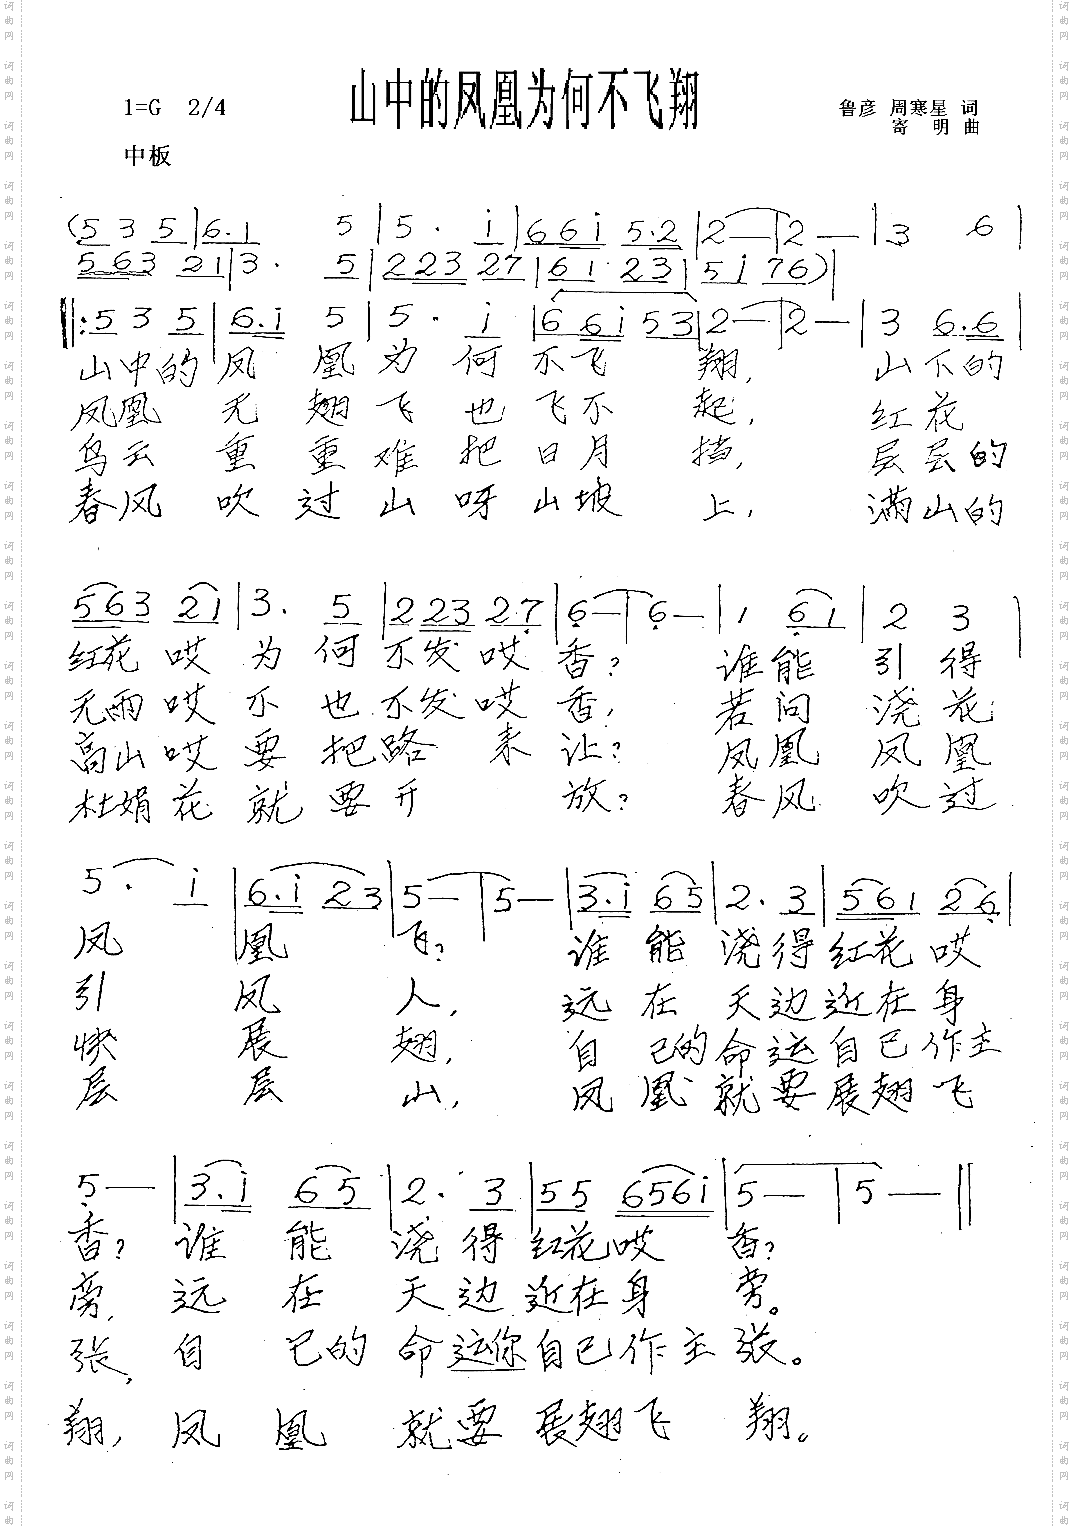 山中的凤凰为何不飞翔
1=G 2/4
鲁彦 周寒星 词
寄 明 曲
中板
(5 3 5 | 6.1 5 | 5 . i | 6 6 i 5.2 | 2 — | 2 — | 3 6 |
5 6 3 2 1 | 3 . 5 | 2 2 3 2 7 | 6 1 2 3 | 5 i 7 6 ) |
‖: 5 3 5 | 6.i 5 | 5 . i | 6 6 i 5 3 | 2 — | 2 — | 3 6.6 |
山中的凤凰为何不飞翔, 山下的
凤凰无翅飞也飞不起, 红花
乌云重重难把日月挡, 层层的
春风吹过山呀山坡上, 满山的
5 6 3 2 1 | 3 . 5 | 2 2 3 2.7 | 6 — | 6 — | 1 6 1 | 2 3 |
红花哎为何不发哎香? 谁能引得
无雨哎不也不发哎香, 若问浇花
高山哎要把路来让? 凤凰凤凰
杜娟花就要开放? 春风吹过
5 . i | 6.i 2 3 | 5 — | 5 — | 3.i 6 5 | 2 . 3 | 5 6 1 2 6 |
凤凰飞? 谁能浇得红花哎
引凤人, 远在天边近在身
快展翅, 自己的命运自己作主
层层山, 凤凰就要展翅飞
5 — | 3.i 6 5 | 2 . 3 | 5 5 6 5 6 i | 5 — | 5 — ‖
香? 谁能浇得红花哎香?
旁, 远在天边近在身旁。
张, 自己的命运你自己作主张。
翔, 凤凰就要展翅飞翔。